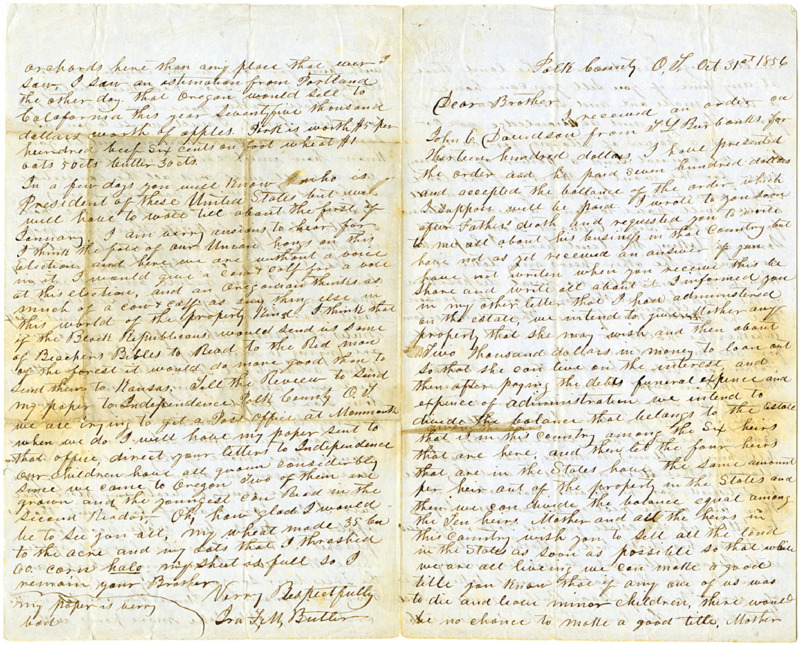 Polk County O. T. Oct 31st 1856
Dear Brother
I received an order on
John C. Davidson from J G Burbanks, for
thirteen hundred dollars, I have presented
the order and he paid seven hundred dollars
and accepted the ballance of the order which
I suppose will be paid I wrote to you soon
after Fathers death and requested you to write
to me all about his business in that Country but
have not as yet received an answer if you
have not written when you receive this be
Shore and write all about it I informed you
in my other letter that I had administered
on the estate, we intend to give Mother any
property that she may wish and then about
Two Thousand dollars in money to loan out
so that she can live on the interest and
then after paying the debts funeral expence and
expence of administration we intend to
divide the balance that belongs to the estate
that is in this country among the Six heirs
that are here, and then let the four heirs
that are in the States have the same amount
per heir out of the property in the States and
then we can divide the balance equal among
the Ten heirs Mother and all the heirs in
this Country wish you to sell all the land
in the States as soon as possible so that while
we are all liveing we can make a good
title you know that if any one of us was
to die and leave minor children, there would
be no chance to make a good title, Mother
orchards here than any place that ever I
saw, I saw an estimation from Portland
the other day that Oregon would sell to
California this year Seventyfive thousand
dollars worth of apples. Pork is worth $5 per
hundred beef Six cents on foot wheat $1
oats 50cts butter 30cts.
In a few days you will know who is
President of these United States but we
will have to wait till about the first of
January I am verry anxious to hear for
I think the fate of our Union hangs on this
Election and here we are without a voice
in it I would give a cow & calf for a vote
at this election, and an Oregonian thinks as
much of a cow & calf as any thing else in
this world of the property kind. I think that
if the Black Republicans would send us some
of Beachers Bibles to Read to the Red men
of the forest it would do more good than to
send them to Kansas. Tell the Review to Send
my paper to Independence Polk County O. T.
we are trying to get a Post Office at Monmouth
when we do I will have my paper sent to
that office direct your letters to Independence
Our children have all grown considerably
since we came to Oregon Two of them are
grown and the youngest can Read in the
Second Reader, Oh, how glad I would
be to see you all, my wheat made 35 bu
to the acre and my oats that I thrashed
60. corn halo my sheet is full so I
remain your Brother
Verry Respectfully
my paper is verry
bad
Ira F. M. Butler